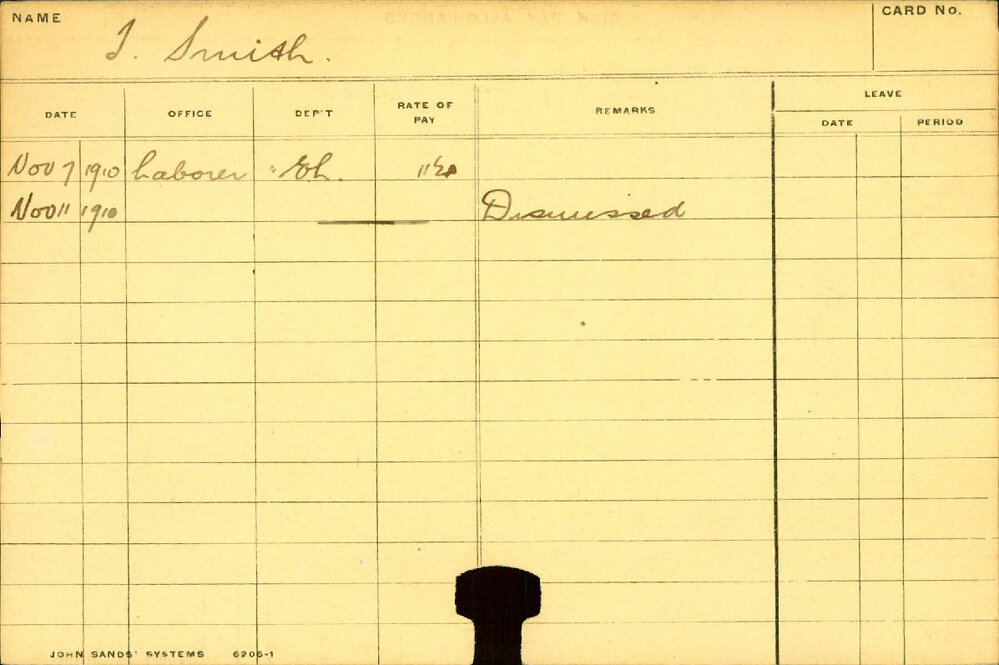 NAME
CARD NO.
Smith.
DATE OFFICE DEP'T RATE OF PAY REMARKS LEAVE
DATE PERIOD
Nov 7 1910 Laborer
Nov 11 1910 Dismissed
JOHN SANDS' SYSTEMS 6206-1